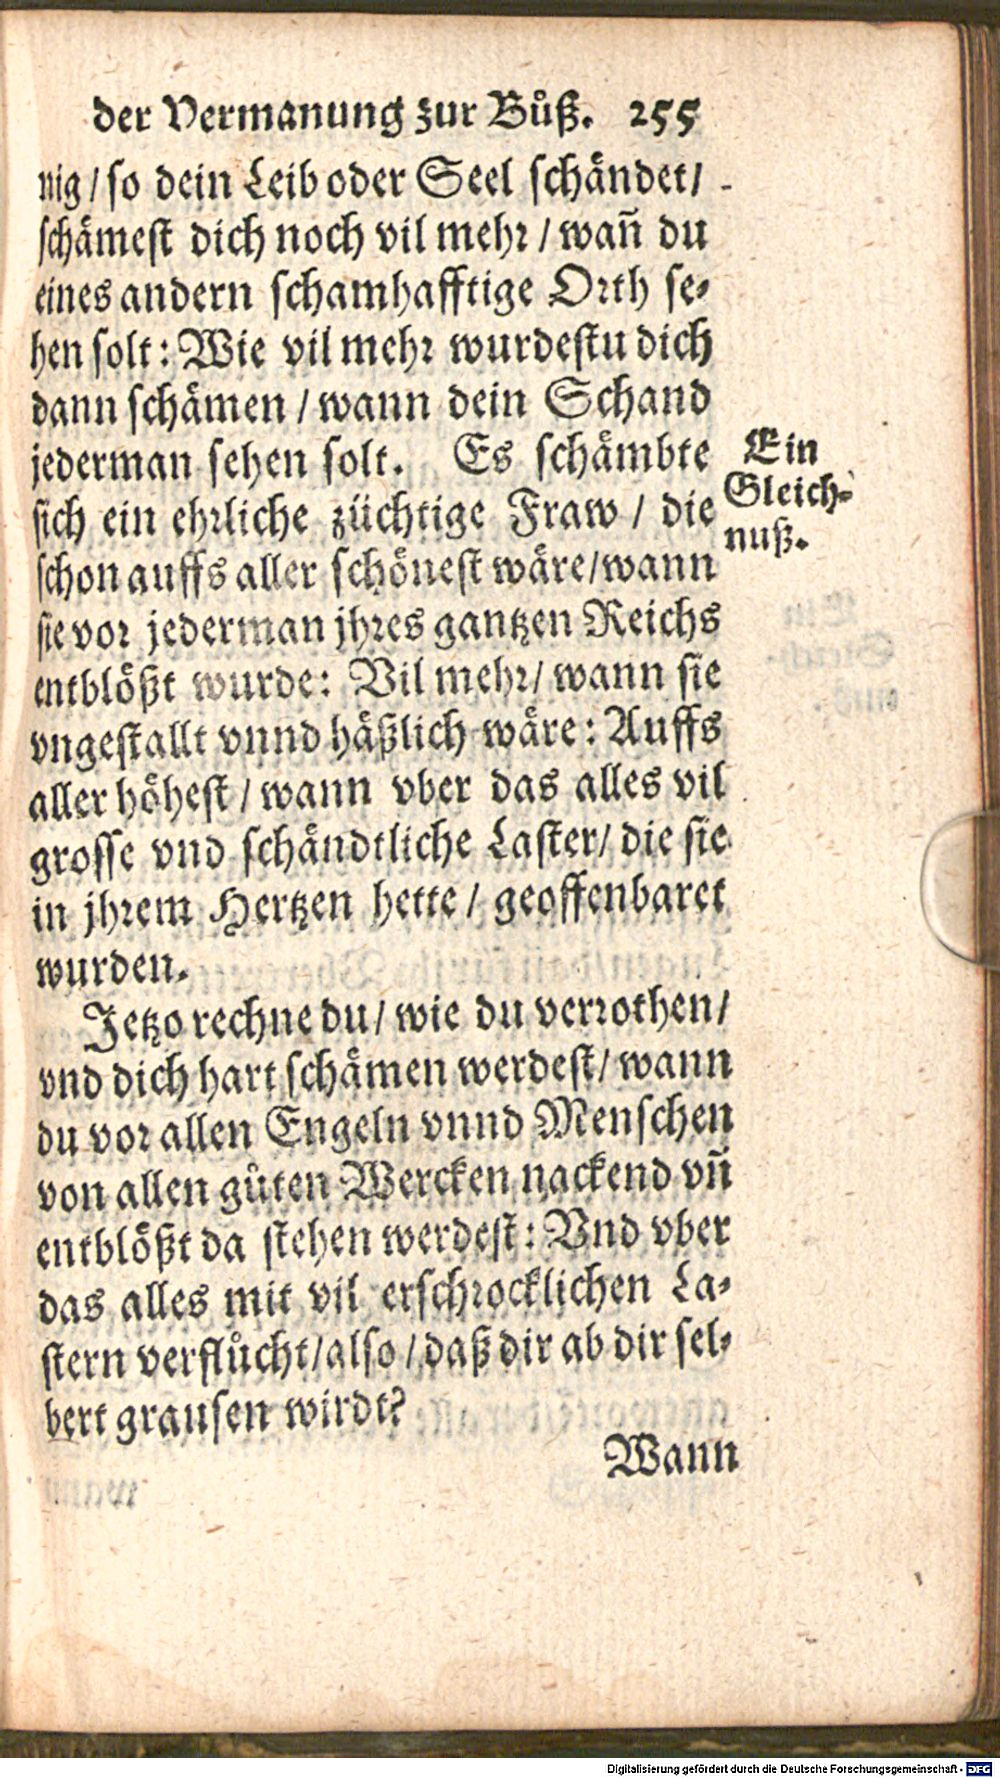 der Vermanung zur Buͦß. 255
nig / so dein Leib oder Seel schändet /
schämest dich noch vil mehr / wañ du
eines andern schamhafftige Orth se-
hen solt: Wie vil mehr wurdestu dich
dann schämen / wann dein Schand
jederman sehen solt. Es schämbte
sich ein ehrliche züchtige Fraw / die
schon auffs aller schönest wäre / wann
sie vor jederman jhres gantzen Reichs
entblößt wurde: Vil mehr / wann sie
vngestallt vnnd häßlich wäre: Auffs
aller höhest / wann vber das alles vil
grosse vnd schändtliche Laster / die sie
in jhrem Hertzen hette / geoffenbaret
wurden.
Jetzo rechne du / wie du verrothen /
vnd dich hart schämen werdest / wann
du vor allen Engeln vnnd Menschen
von allen guͦten Wercken nackend vñ
entblößt da stehen werdest: Vnd vber
das alles mit vil erschrocklichen La-
stern verfluͦcht / also / daß dir ab dir sel-
bert grausen wirdt?
Wann
Ein
Gleich-
nuß.
Digitalisierung gefördert durch die Deutsche Forschungsgemeinschaft - DFG